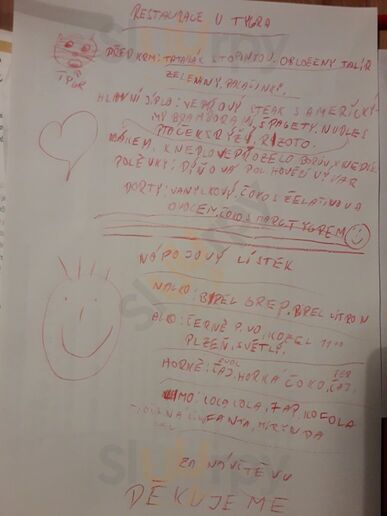 RESTAURACE U TYGRA
TYGR
PŘEDKRM: TATARÁK S TOPINKOU. OBLOŽENÝ TALÍŘ
ZELENINY,
HLAVNÍ JÍDLO: VEPŘOVÝ STEAK S AMERICKÝ-
MY BRAMBORAMI, ŠPAGETY, NUDLES
PTÁČEK S RÝŽÍ, RIZOTO.
KNEDLO VEPŘO ZELO
POLÉVKY: DÝŇOVÁ HOVĚZÍ VÝVAR
DORTY: VANILKOVÝ, ČOKO S ŽELATINOU A
OVOCEM, ČOKO S MARC TYGREM
NÁPOJOVÝ LÍSTEK
NALKO: BIREL GREP, BIREL CITRON
ALKO: ČERNÉ PIVO, KOZEL 11°
PLZEŇ, SVĚTLÝ.
HORKÉ: ČAJ, HORKÁ ČOKO, ČAJ,
LIMO: COCA COLA, 7UP, KOFOLA
FANTA, MIRINDA
ZA NÁVŠTĚVU
DĚKUJEME